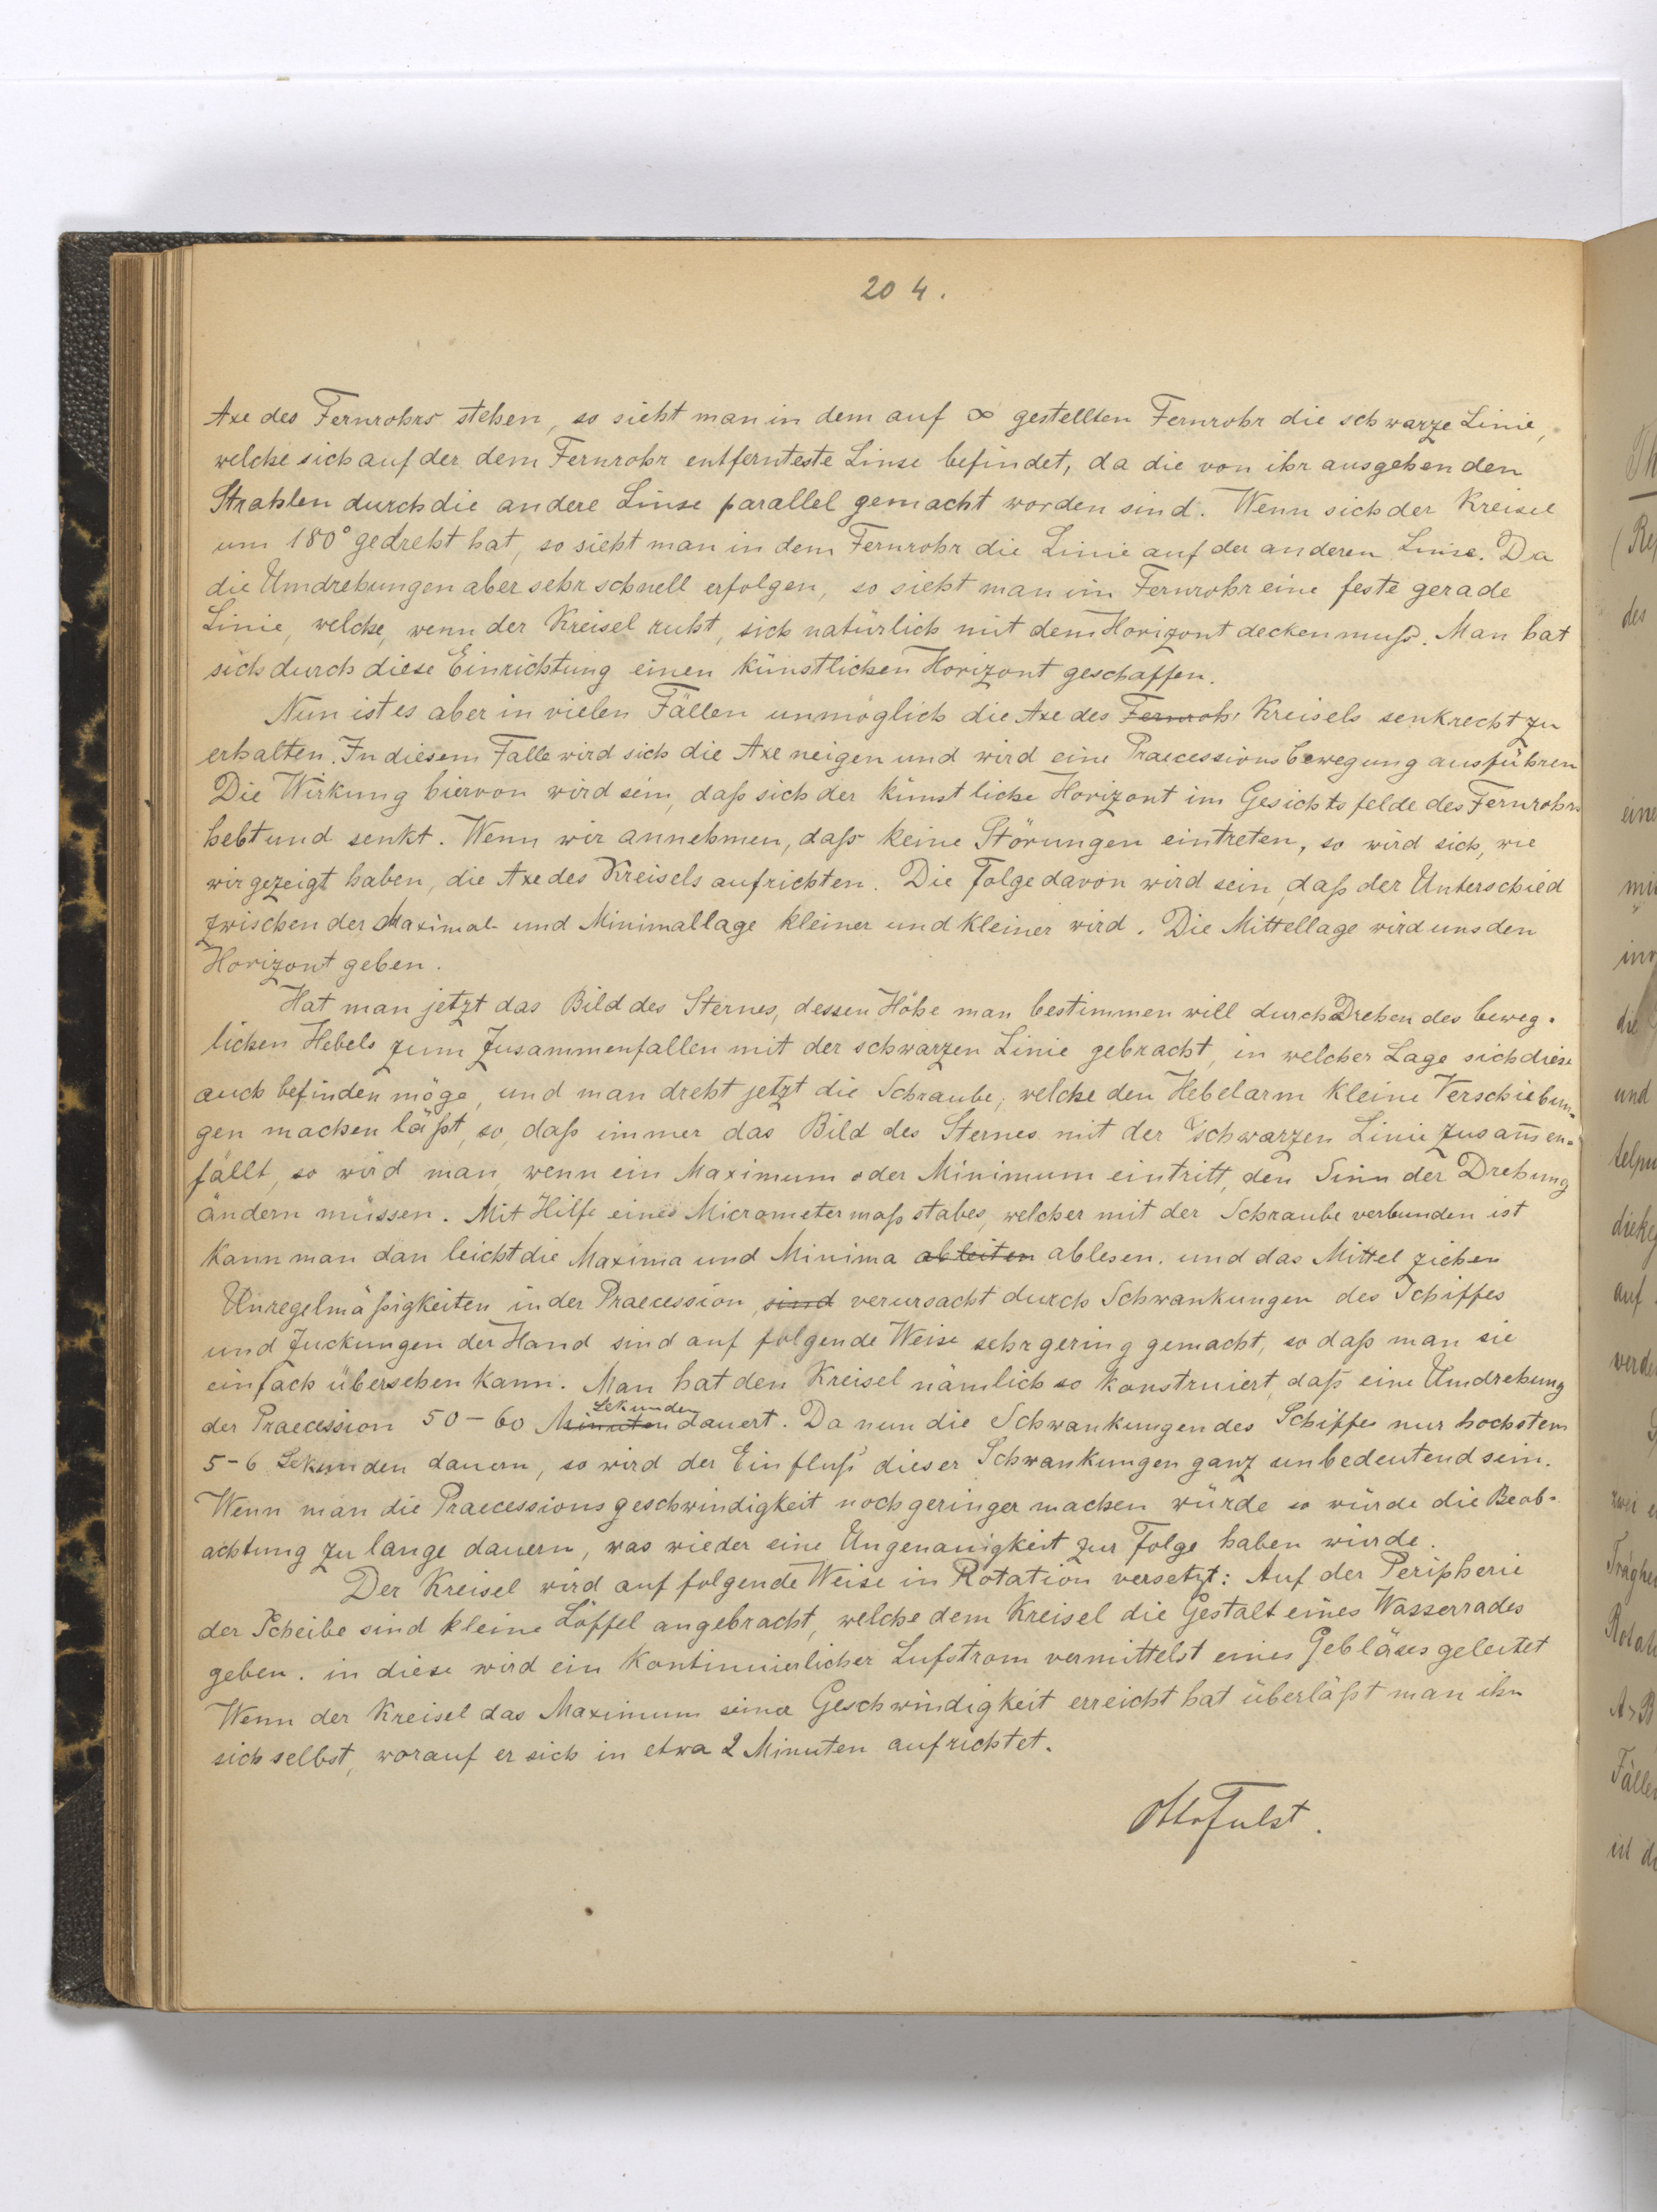 204.
Axe des Fernrohrs stehen, so sieht man in dem auf ∞ gestellten Fernrohr die schwarze Linie,
welche sich auf der dem Fernrohr entfernteste Linse befindet, da die von ihr ausgehenden
Strahlen durch die andere Linse parallel gemacht worden sind. Wenn sich der Kreisel
um 180° gedreht hat, so sieht man in dem Fernrohr die Linie auf der anderen Linse. Da
die Umdrehungen aber sehr schnell erfolgen, so sieht man im Fernrohr eine feste gerade
Linie, welche, wenn der Kreisel ruht, sich natürlich mit dem Horizont decken muß. Man hat
sich durch diese Einrichtung einen künstlichen Horizont geschaffen.
Nun ist es aber in vielen Fällen unmöglich die Axe des Fernroh Kreisels senkrecht zu
erhalten. In diesem Falle wird sich die Axe neigen und wird eine Praecessionsbewegung ausführen
Die Wirkung hiervon wird sein, daß sich der künstliche Horizont im Gesichtsfelde des Fernrohrs
hebt und senkt. Wenn wir annehmen, daß keine Störungen eintreten, so wird sich, wie
wir gezeigt haben, die Axe des Kreisels aufrichten. Die Folge davon wird sein, daß der Unterschied
zwischen der Maximal- und Minimallage kleiner und kleiner wird. Die Mittellage wird uns den
Horizont geben.
Hat man jetzt das Bild des Sternes, dessen Höhe man bestimmen will durch Drehen des beweg-
lichen Hebels zum Zusammenfallen mit der schwarzen Linie gebracht, in welcher Lage sich diese
auch befinden möge, und man dreht jetzt die Schraube, welche den Hebelarm kleine Verschiebun-
gen machen läßt, so, daß immer das Bild des Sternes mit der schwarzen Linie zusam̄en-
fällt, so wird man, wenn ein Maximum oder Minimum eintritt, den Sinn der Drehung
ändern müssen. Mit Hilfe eines Micrometermaßstabes, welcher mit der Schraube verbunden ist
kann man dan leicht die Maxima und Minima ableiten ablesen. und das Mittel ziehen
Unregelmäßigkeiten in der Praecession, sind verursacht durch Schwankungen des Schiffes
und Zuckungen der Hand sind auf folgende Weise sehr gering gemacht, so daß man sie
einfach übersehen kann. Man hat den Kreisel nämlich so konstruiert, daß eine Umdrehung
der Praecession 50-60 Minuten Sekunden dauert. Da nun die Schwankungen des Schiffes nur hochstens
5-6 Sekunden dauern, so wird der Einfluß dieser Schwankungen ganz unbedeutend sein.
Wenn man die Praecessionsgeschwindigkeit noch geringer machen würde so würde die Beob-
achtung zu lange dauern, was wieder eine Ungenauigkeit zur Folge haben würde.
Der Kreisel wird auf folgende Weise in Rotation versetzt: Auf der Peripherie
der Scheibe sind kleine Löffel angebracht, welche dem Kreisel die Gestalt eines Wasserrades
geben. in diese wird ein kontinuierlicher Lufstrom vermittelst eines Gebläses geleitet
Wenn der Kreisel das Maximum seiner Geschwindigkeit erreicht hat überläßt man ihn
sich selbst, worauf er sich in etwa 2 Minuten aufrichtet.
Otto Fulst.